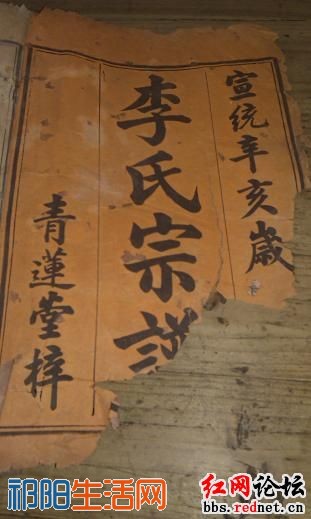 宣统辛亥歲
李氏宗譜
青蓮堂梓
祁阳生活网
红网论坛
bbs.rednet.cn